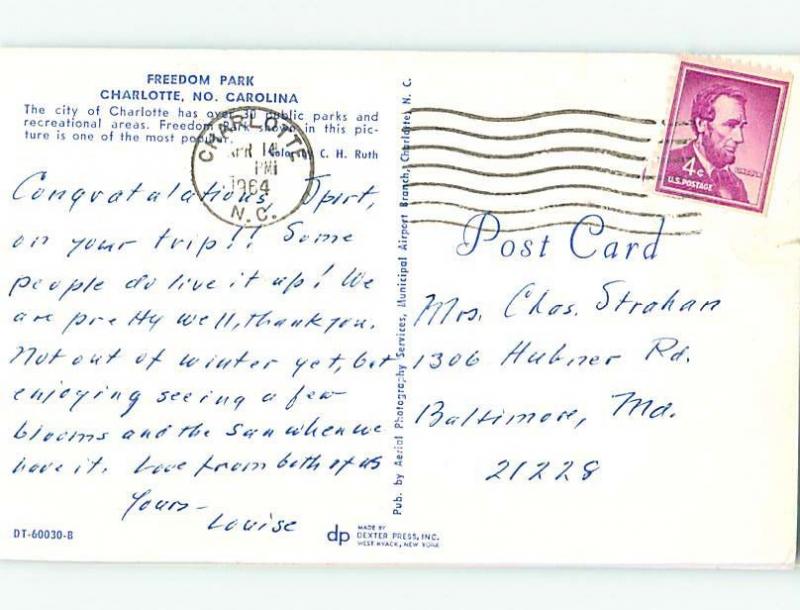 FREEDOM PARK
CHARLOTTE, NO. CAROLINA
The city of Charlotte has over 30 public parks and
recreational areas. Freedom Park shown in this pic-
ture is one of the most popular.
Color by C. H. Ruth
CHARLOTTE
APR 14
PM
1964
N.C.
4¢
U.S. POSTAGE
Congratulations, Sport,
on your trip!! Some
people do live it up! We
are pretty well, thank you.
Not out of winter yet, but
enjoying seeing a few
blooms and the sun when we
have it. Love from both of us
Yours-
Louise
Post Card
Mrs. Chas. Strahan
1306 Hubner Rd.
Baltimore, Md.
21228
Pub. by Aerial Photography Services, Municipal Airport Branch, Charlotte, N. C.
DT-60030-B
dp
MADE BY
DEXTER PRESS, INC.
WEST NYACK, NEW YORK